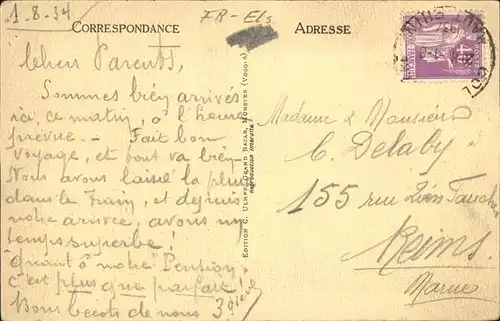 1-8-34
FR-Els
CORRESPONDANCE
ADRESSE
Chers Parents,
Sommes bien arrivés
ici, ce matin, à l'heure
prévue. - Fait bon
voyage, et tout va bien
Nous avons laissé la pluie
dans le train, et depuis
notre arrivée, avons un
temps superbe!
Quant à notre Pension,
C'est plus que parfait!
Bons becots de nous 3
EDITION C. ULMER, GRAND BAZAR, MUNSTER (VOSGES)
Reproduction Interdite
Madame & Monsieur
C. Delaby
155 rue
Reims
Marne